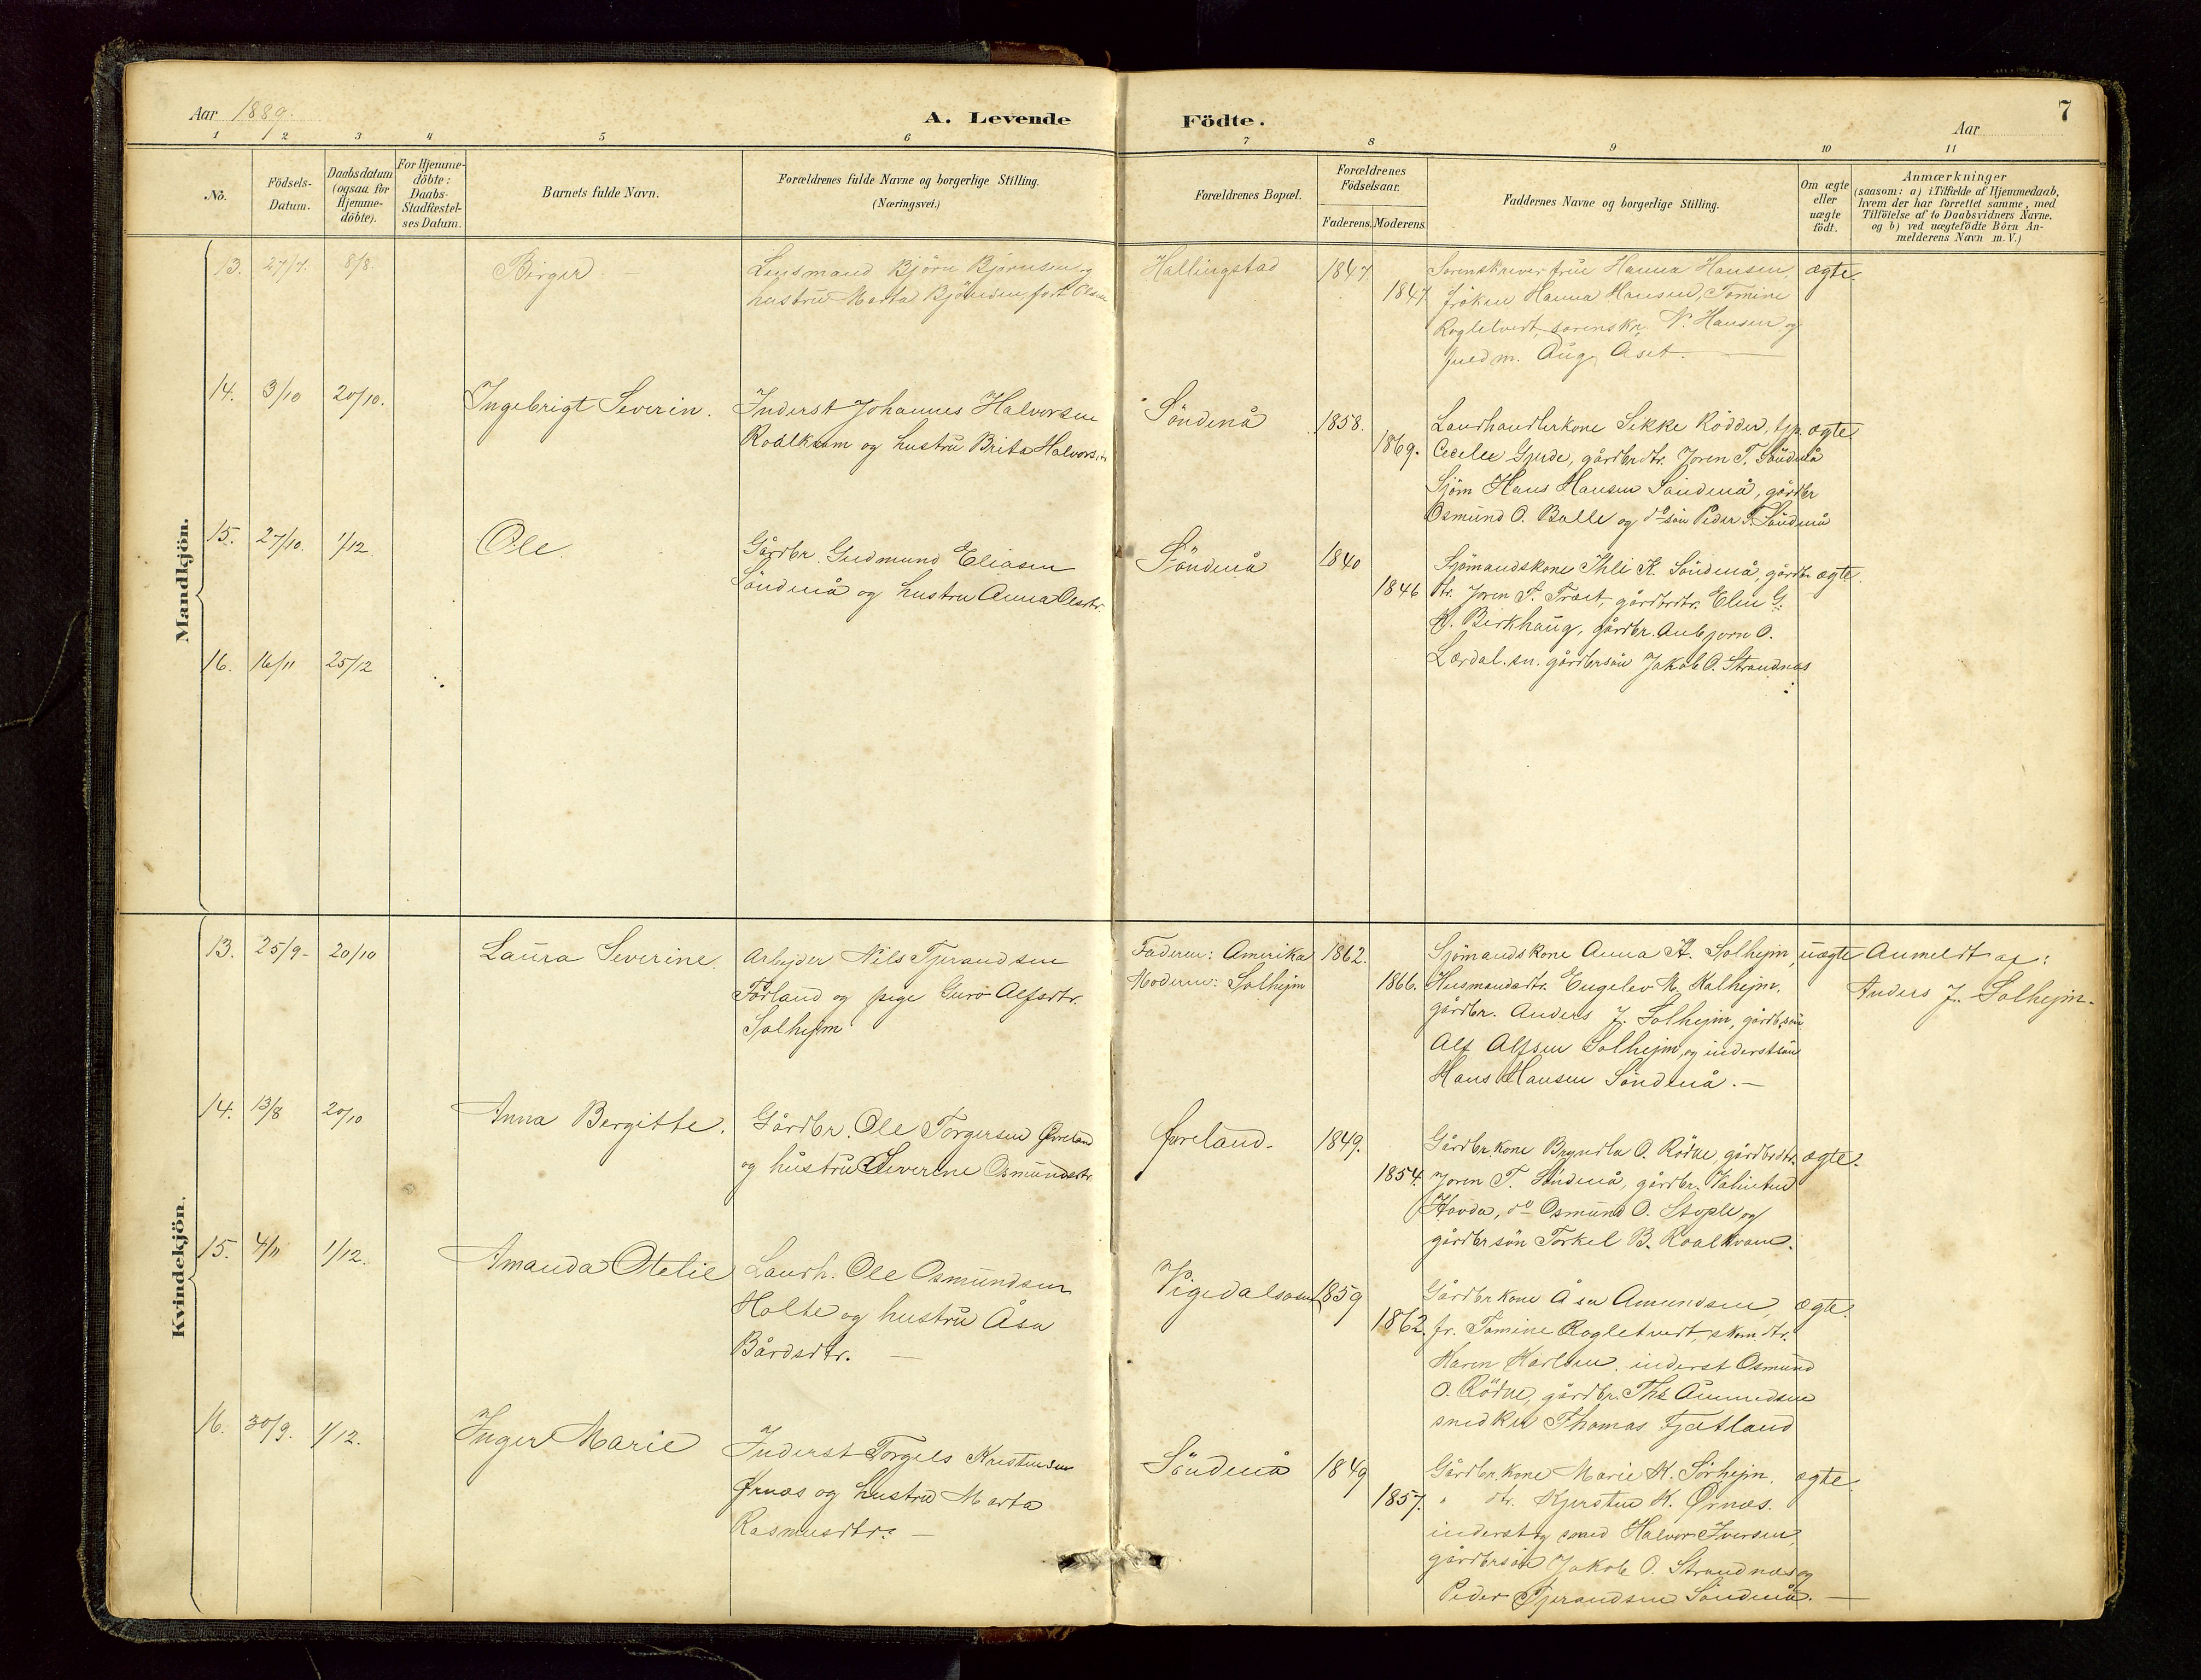 Aar 1889.
A. Levende
Födte.
Aar
7
1
2
3
4
5
6
7
8
9
10
11
No.
Födsels-
Datum.
Daabsdatum
(ogsaa for
Hjemme-
döbte).
For Hjemme-
döbte:
Daabs-
Stadfæstel-
ses Datum.
Barnets fulde Navn.
Forældrenes fulde Navne og borgerlige Stilling.
(Næringsvei.)
Forældrenes Bopæl.
Forældrenes
Födselsaar.
Faderens.
Moderens.
Faddernes Navne og borgerlige Stilling.
Om ægte
eller
uægte
födt.
Anmærkninger
(saasom: a) i Tilfælde af Hjemmedaab,
hvem der har forrettet samme, med
Tilföielse af to Daabsvidners Navne.
og b) ved uægtefödte Börn An-
melderens Navn m.V.)
Mandkjön.
13. 27/7. 8/8.
Birger
Lensmand Björn Björnsen og
hustru Marta Björnsen født Olsen
Hallingstad
1847
1847
Sorenskriverfrue Hanna Hansen,
fröken Hanna Hansen, Tomine
Rogletvedt, sorenskr. N. Hansen og
fuldm. Aug. Aset.
ægte.
14. 3/10 20/10.
Ingebrigt Severin.
Inderst Johannes Halvorsen
Roalkvam og hustru Brita Halvors
Söndenå
1858.
1869.
Landhandlerkone Sikke Rödder, tjp.
Cecelie Gjerde, gårdbrdtr. Joren T. Söndenå
Sjöm Hans Hansen Söndenå, gårdbr
Osmund O. Balle og do sön Peder T. Söndenå
ægte
15. 27/10. 1/12.
Ole.
Gårdbr. Gudmund Eliasen
Söndenå og hustru Anna Olsdtr.
Söndenå
1840
1846
Sjömandskone Thli K. Söndenå, gårdbr
dtr. Joren T. Træet, gårdbrdtr. Elen G.
K. Birkhaug, gårdbr. Anbjorn O.
Lærdal. sn. gårdbrsön Jakob O. Strandnæs
ægte.
16. 16/11 25/12
Kvindekjön.
13. 25/9 - 20/10
Laura Severine.
Arbejder Nils Tjerandsen
Førland og pige Guro Alfsdtr.
Solhejm
Faderen: Amerika
Moderen: Solhejm
1862.
1866.
Sjömandskone Anna A. Solhejm,
Husmandsdtr. Engelev N. Kalhejm.
gårdbr. Anders J. Solhejm, gårdbrsön
Alf Alfsen Solhejm, og inderstsön
Hans Hansen Söndenå. —
uægte
Anmeldt af:
Anders J. Solhejm.
14. 13/8 20/10
Anna Bergitte.
Gårdbr. Ole Torgersen Øvreland
og hustru Severine Osmundsdtr
Øvreland.
1849.
1854.
Gårdbrkone Bryndla O. Rödne, gårdbrdtr.
Joren T. Söndenå, gårdbr. Valentin
Hovda, do Osmund O. Stople og
gårdbrsön Torkel B. Roalkvam.
ægte.
15. 4/11 1/12.
Amanda Otelie
Landh. Ole Osmundsen
Holte og hustru Åsa
Bårdsdtr. —
Vigedalsosen
1859
1862.
Gårdbrkone Åsa Amundsen,
fr. Tomine Rogletvedt, skomdtr.
Karen Karlsen. inderst Osmund
O. Rödne, gårdbr. Ths Åmundsen
snedker Thomas Fjetland
ægte.
16. 30/9. 1/12.
Inger Marie
Inderst Torgels Kristensen
Ørnæs og hustru Marta
Rasmusdtr. —
Söndenå
1849
1857.
Gårdbrkone Marie K. Sørhejm.
" dtr. Kjersten K. Ørnæs.
inderst og smed Halvor Iversen,
gårdbrsön Jakob O. Strandnæs og
Peder Tjerandsen Söndenå. —
ægte.